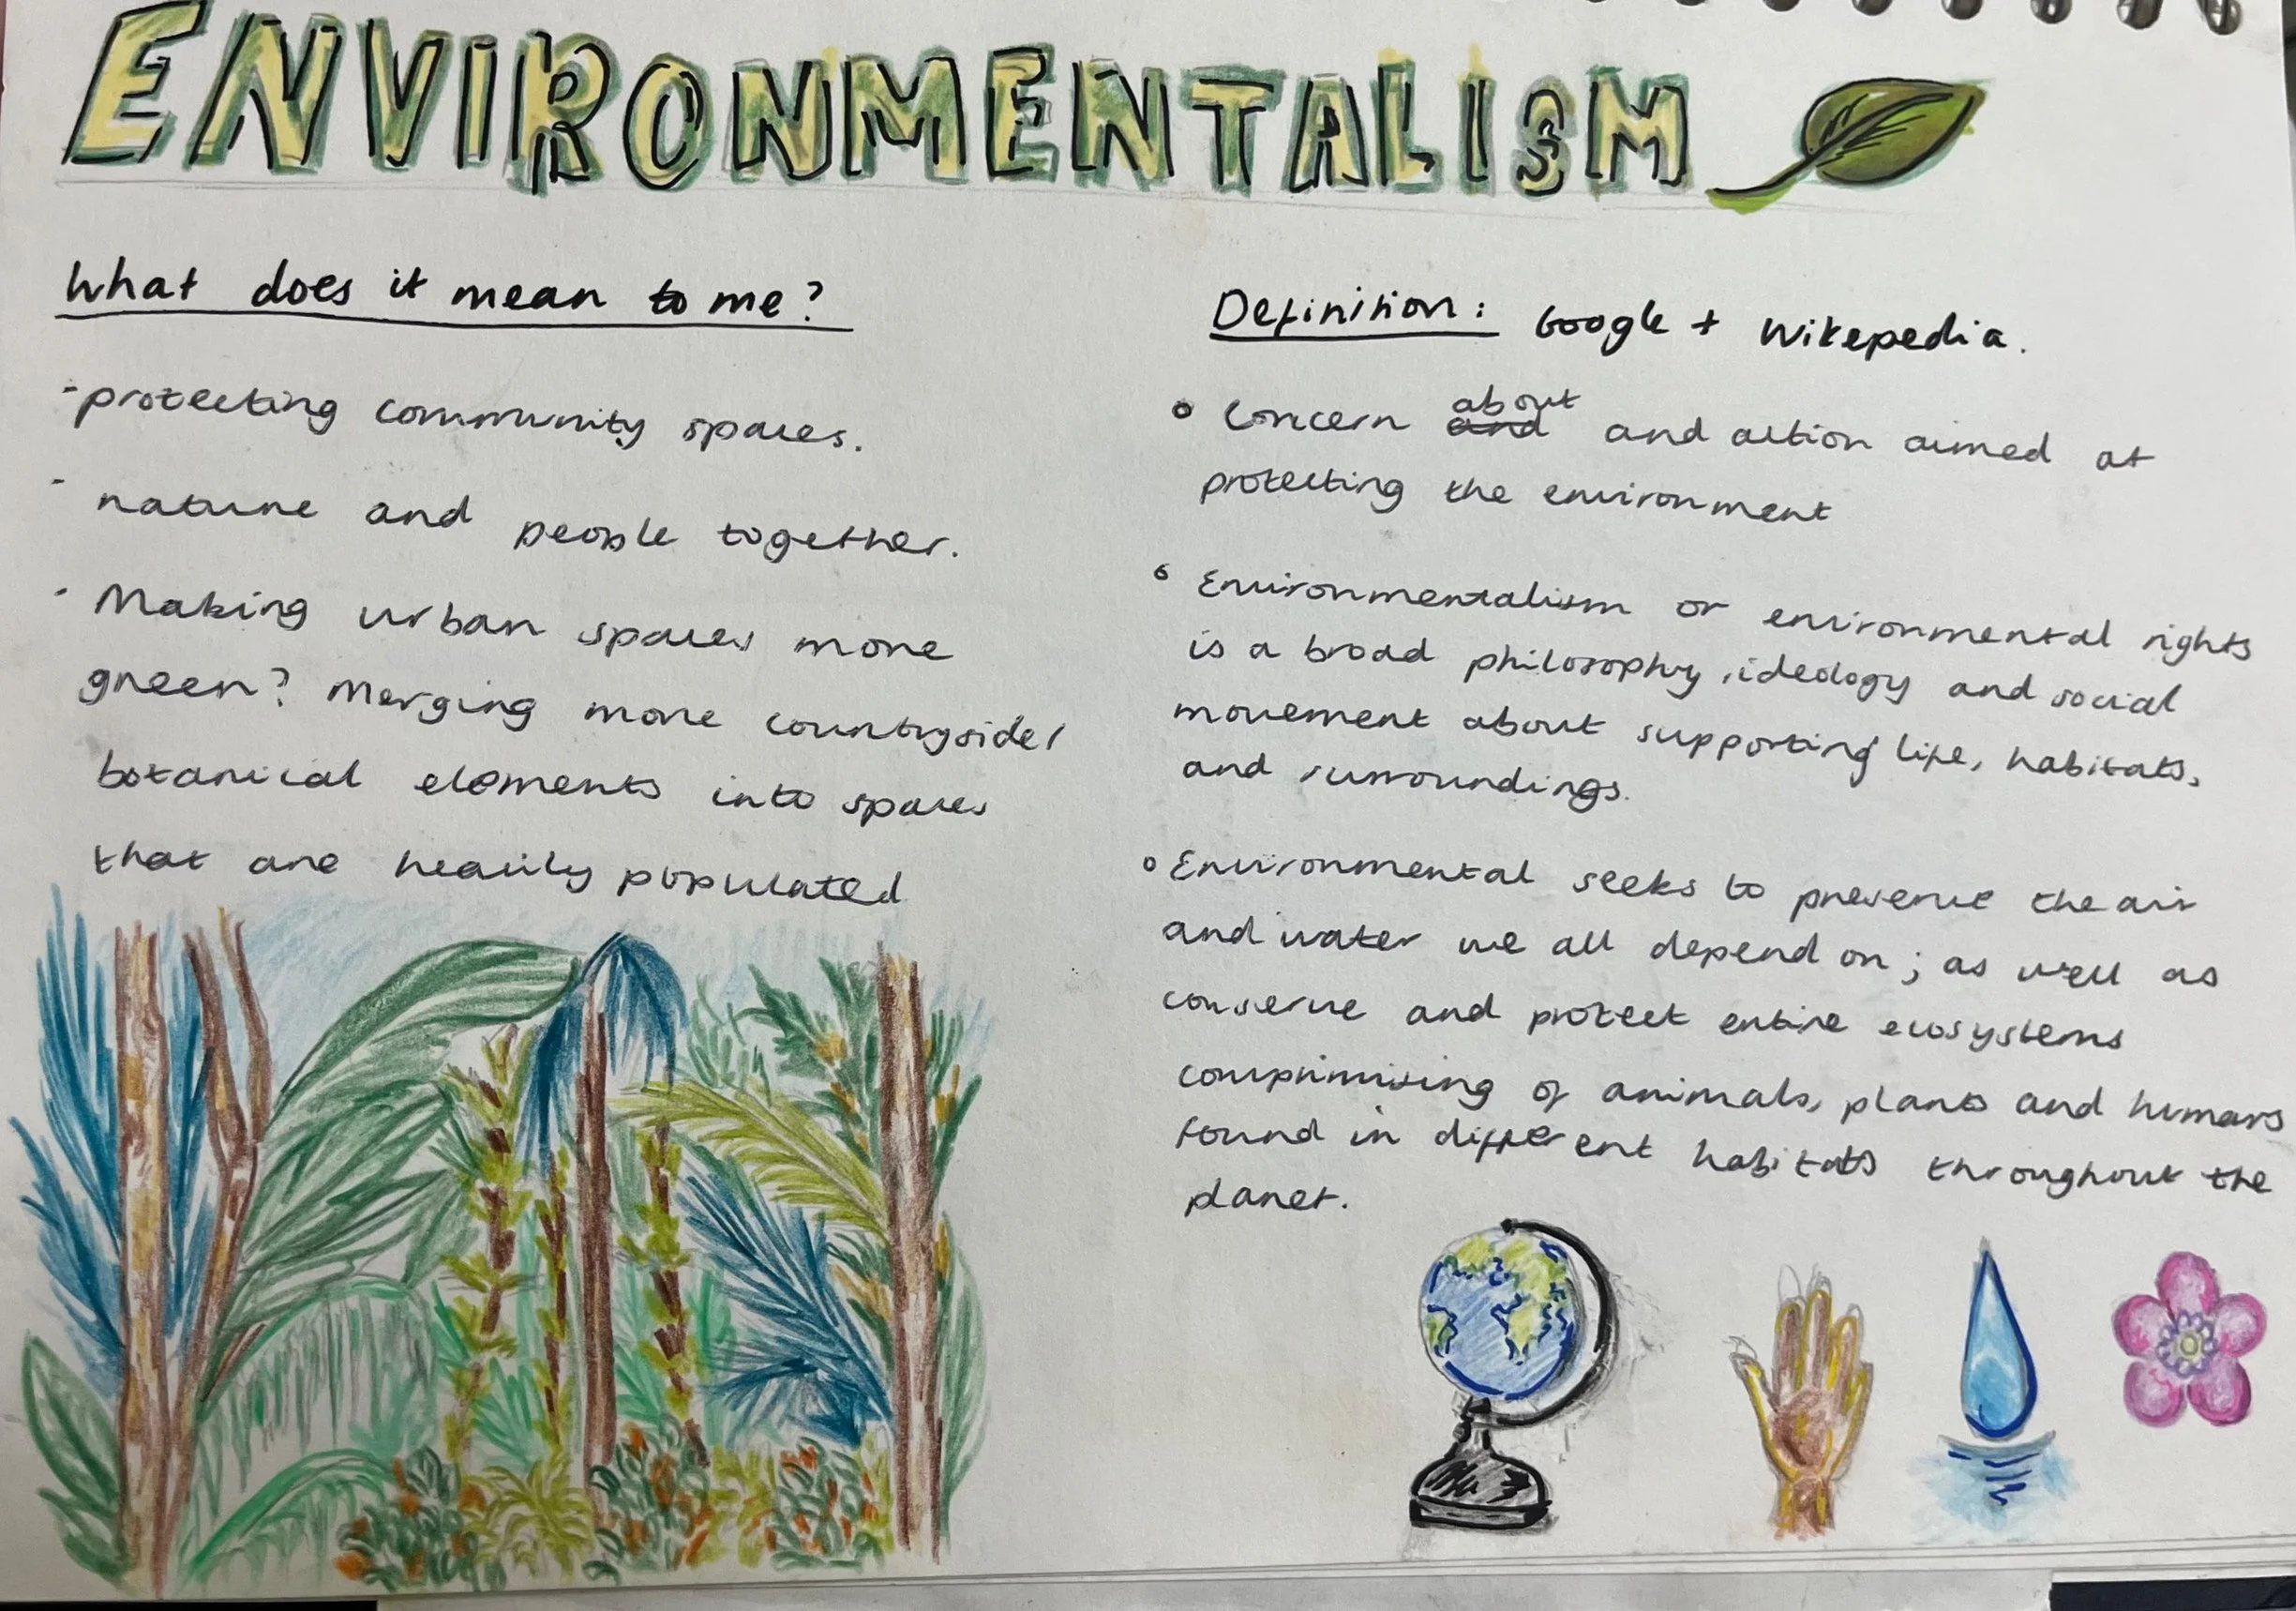 ENVIRONMENTALISM
What does it mean to me?
- protecting community spaces.
- nature and people together.
- Making urban spaces more
green? Merging more countryside/
botanical elements into spaces
that are heavily populated
Definition: Google + Wikepedia.
o Concern and about and action aimed at
protecting the environment
o Environmentalism or environmental rights
is a broad philosophy, ideology and social
movement about supporting life, habitats,
and surroundings.
o Environmental seeks to preserve the air
and water we all depend on; as well as
conserve and protect entire ecosystems
comprimising of animals, plants and humans
found in different habitats throughout the
planet.